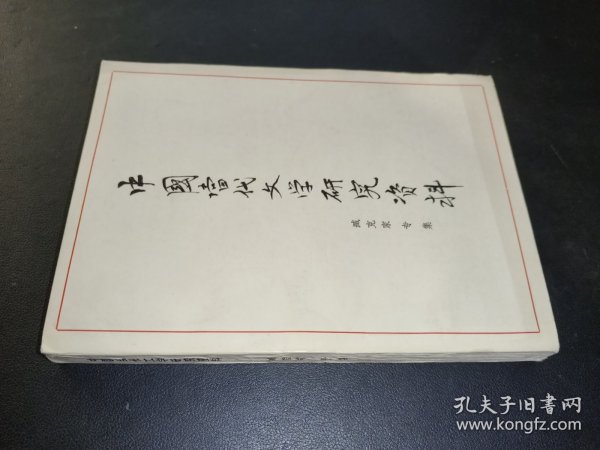 中國當代文学研究资料
臧克家专集
孔夫子旧书网
www.kongfz.com